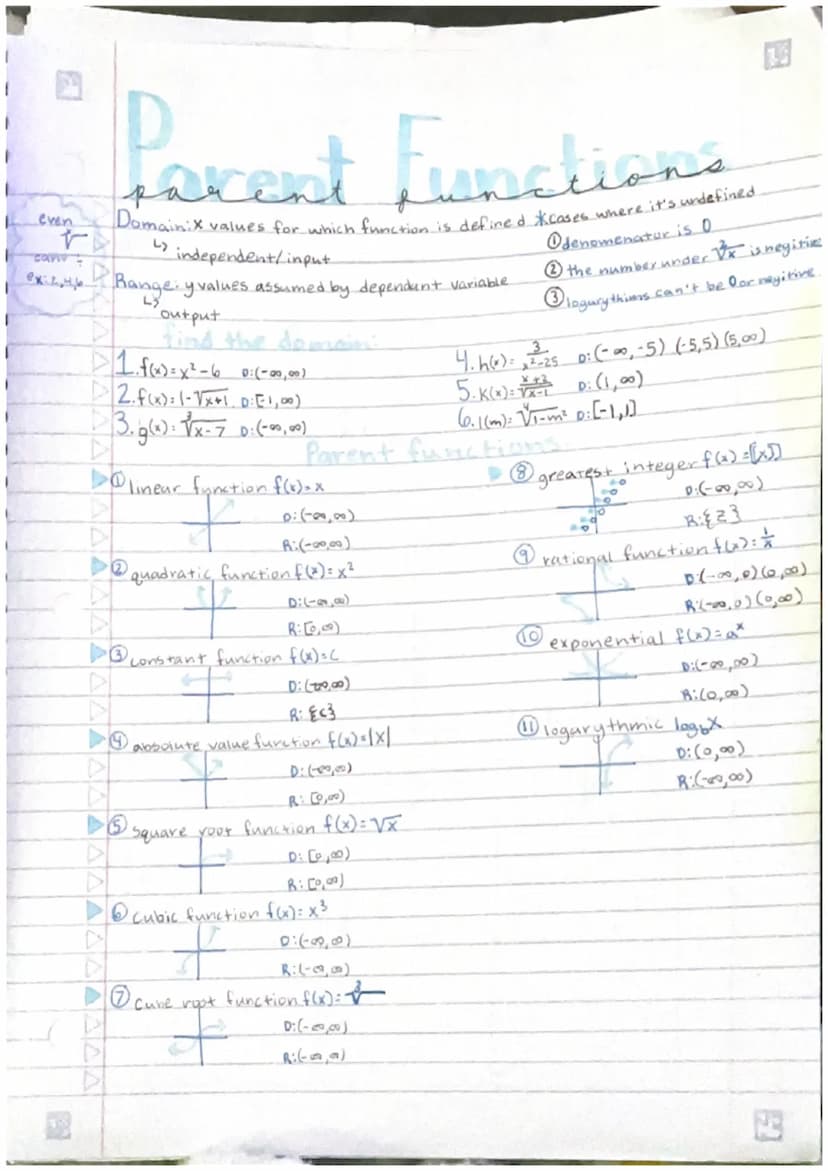 Parent Functions
parent functions
even
√
cant :
ex: 2,4,6
Domain: x values for which function is defined *cases where it's undefined
↳ independent/input
① denomenator is 0
② the number under ²√x is negitive
③ logurythims can't be 0 or negitive.
Range: y values assumed by dependunt variable
↳ output
find the domain:
1. f(x)=x²-6 D:(-∞,∞)
2. f(x)=1-√x+1 D:[-1,∞)
3. g(x)=³√x-7 D:(-∞,∞)
4. h(x)= 3/x²-25 D:(-∞,-5) (-5,5) (5,∞)
5. K(x)= x+2/√x-1 D:(1,∞)
6. l(m)= ⁴√1-m² D:[-1,1]
Parent functions
① linear function f(x)=x
D:(-∞,∞)
R:(-∞,∞)
② quadratic function f(x)=x²
D:(-∞,∞)
R:[0,∞)
③ constant function f(x)=c
D:(-∞,∞)
R: {c}
④ absolute value function f(x)=|x|
D:(-∞,∞)
R: [0,∞)
⑤ square root function f(x)=√x
D: [0,∞)
R: [0,∞)
⑥ cubic function f(x)=x³
D:(-∞,∞)
R:(-∞,∞)
⑦ cube root function f(x)=³√
D:(-∞,∞)
R:(-∞,∞)
⑧ greatest integer f(x)=[[x]]
D:(-∞,∞)
R:{Z}
⑨ rational function f(x)=1/x
D:(-∞,0)(0,∞)
R:(-∞,0)(0,∞)
⑩ exponential f(x)=aˣ
D:(-∞,∞)
R:(0,∞)
⑪ logurythmic log_b X
D:(0,∞)
R:(-∞,∞)